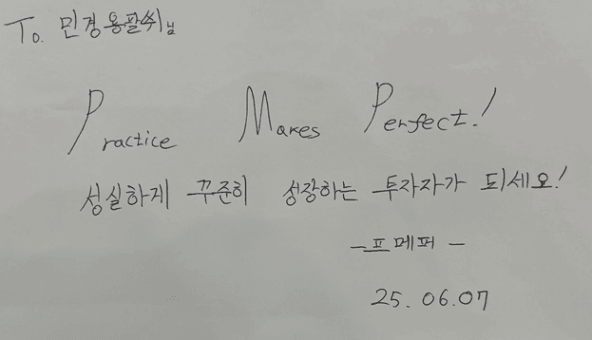 To. 민경용팔쒸님
Practice Makes Perfect!
성실하게 꾸준히 성장하는 투자자가 되세요!
-프메퍼-
25.06.07